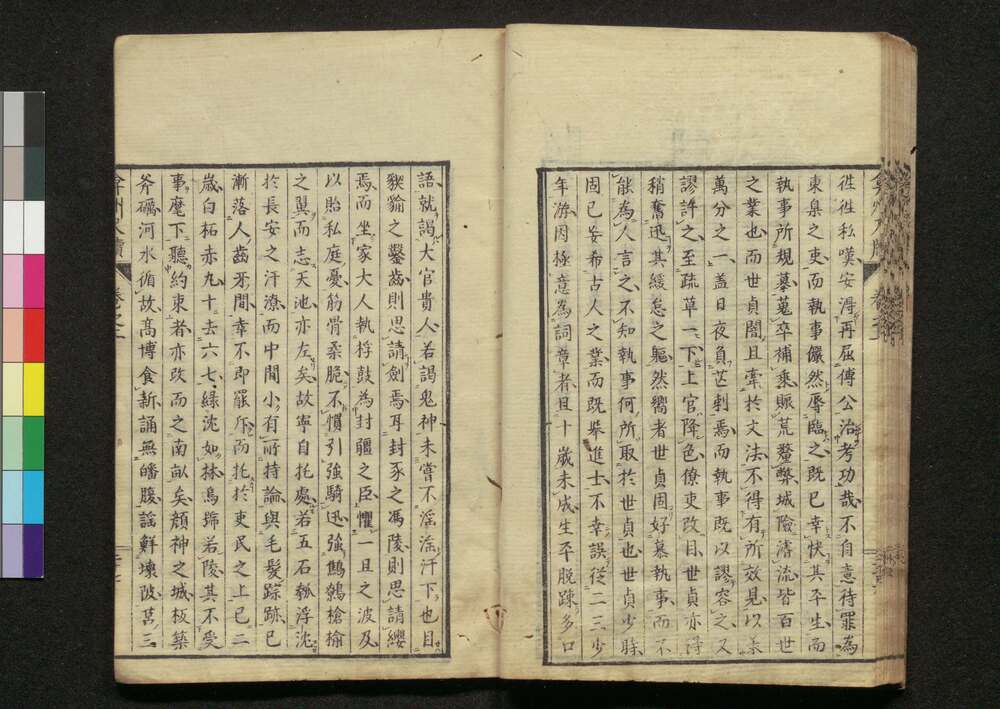 徃徃私嘆安淂再屈傅公治考功哉不自意待罪為
東臬之吏而執事儼然辱臨之既已幸快其平生而
執事所規摹蒐卒補乗賑荒釐弊城險濬流皆百世
之業也而世貞闇且牽於文法不得有所效見以裘
萬分之一盖日夜負芒刺焉而執事既以謬容之又
謬許之至疏草一下上官降色僚吏改目世貞亦淂
稍奮迅其緩怠之軀然嚮者世貞固好慕執事而不
能為人言之不知執事何所取於世貞也世貞少時
固已妄希古人之業而既舉進士不幸誤従二三少
年游因極意為詞章者且十歲未成生平脱踈多口
語就謁大官貴人若謁鬼神未嘗不滛滛汗下也目
猰貐之鑿齒則思請劍焉耳封豕之馮陵則思請纓
焉而坐家大人執桴鼓為封疆之臣懼一旦之波及
以貽私庭憂筋骨柔脆不慣引強騎迅強鷦鷯槍榆
之翼而志天池亦左矣故寧自托處若五石瓠浮沈
於長安之汗潦而中間小有所持論與毛髮踪跡已
漸落人齒牙間幸不即罷斥而托於吏民之上已二
歲白柘赤丸十去六七緑沈如林烏號若陵其不受
事麾下聽約束者亦改而之南畝矣顔神之城板築
斧礪河水循故髙博食新誦無皤腹謡鮮壊陂莒三